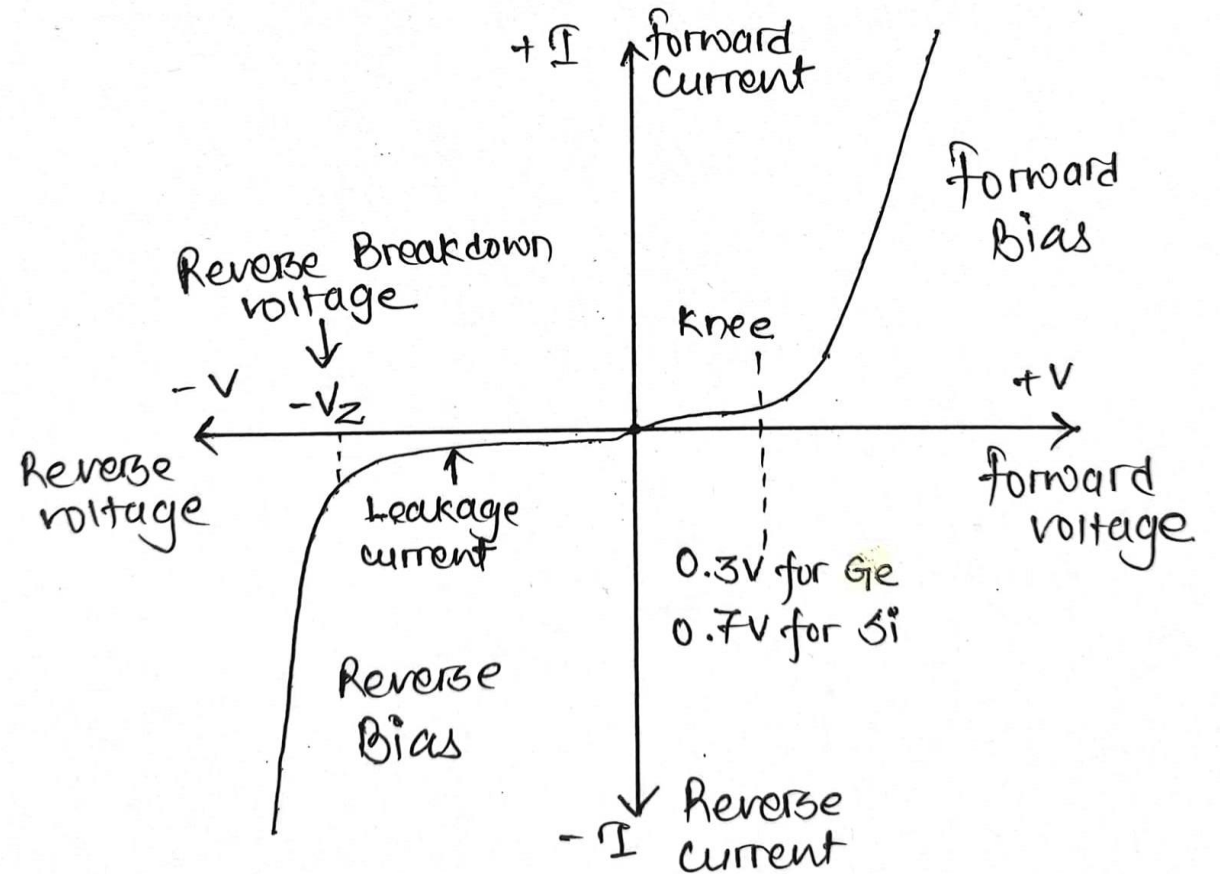 + I
forward
current
forward
Bias
Reverse Breakdown
voltage
Knee
- V
-Vz
+ V
Reverse
voltage
Leakage
current
forward
voltage
0.3V for Ge
0.7V for Si
Reverse
Bias
- I
Reverse
current